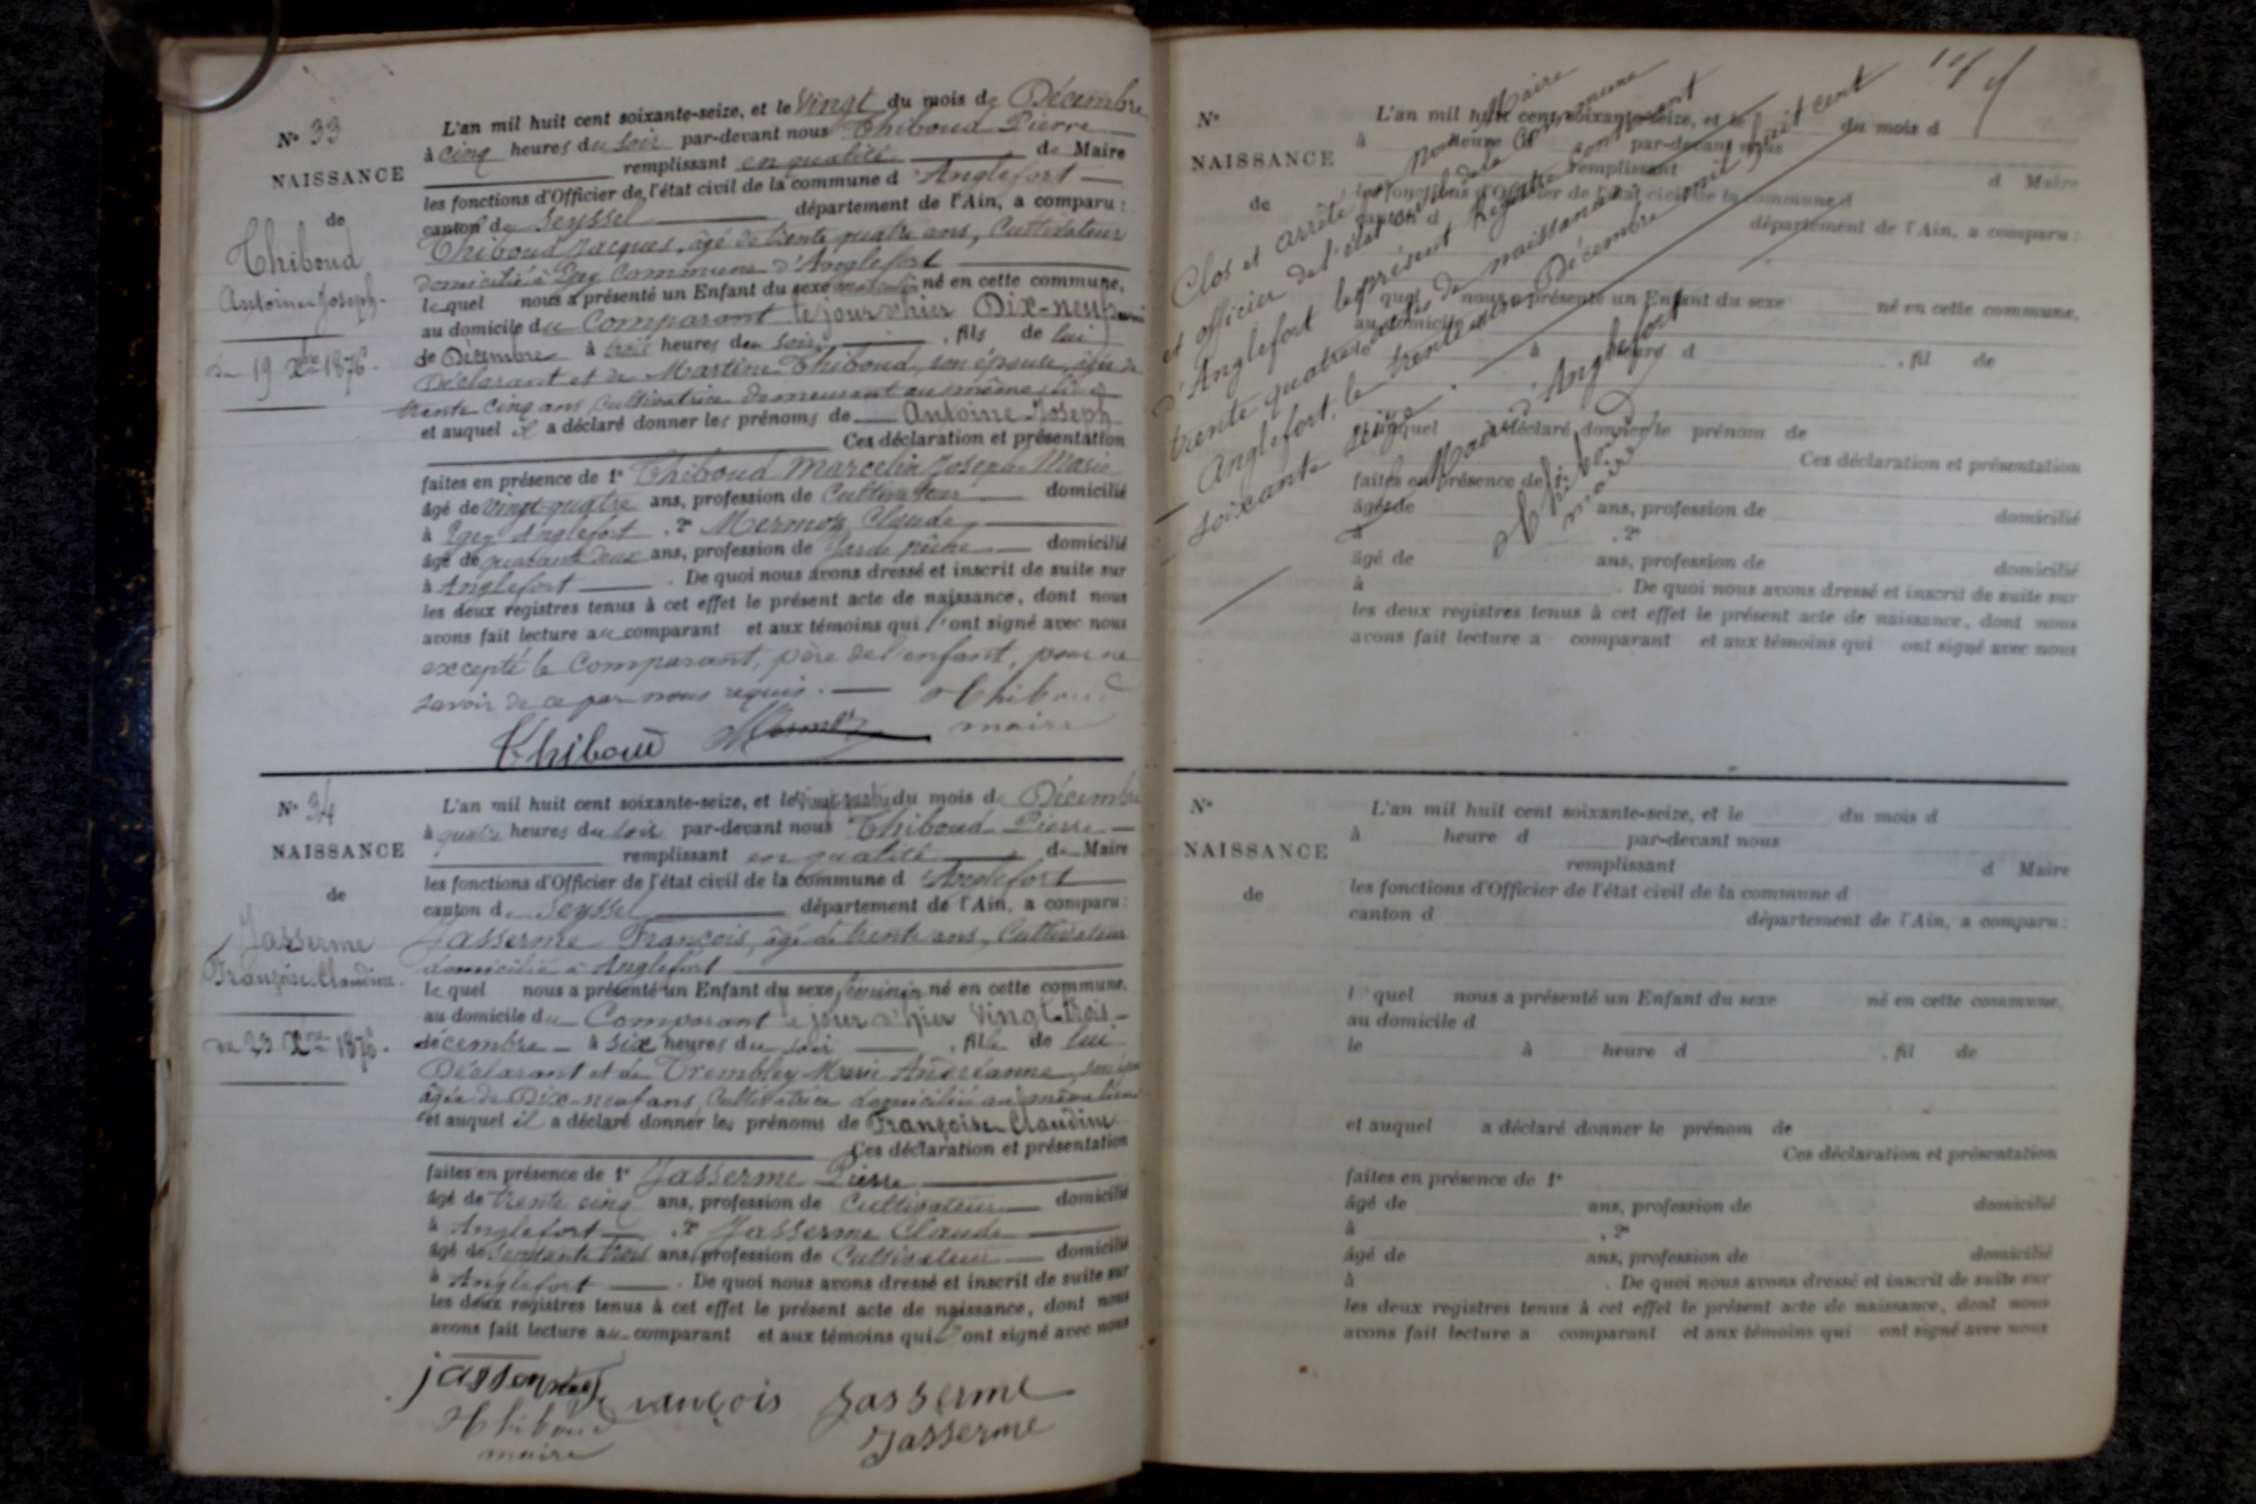 N° 33
NAISSANCE
de
Thiboud
Antoine Joseph.
du 19 Xbre 1876.
L'an mil huit cent soixante-seize, et le Vingt du mois de Décembre
à cinq heures du soir par-devant nous Thiboud Pierre
remplissant en qualité de Maire
les fonctions d'Officier de l'état civil de la commune d'Anglefort
canton de Seyssel département de l'Ain, a comparu :
Thiboud Jacques, âgé de trente quatre ans, Cultivateur
domicilié à Commune d'Anglefort
lequel nous a présenté un Enfant du sexe masculin né en cette commune,
au domicile du Comparant le jour d'hier Dix-neuf
de Décembre à trois heures du soir, fils de lui
Déclarant et de Martine Thiboud, son épouse, âgée de
trente cinq ans, Cultivatrice demeurant au même lieu
et auquel il a déclaré donner les prénoms de Antoine Joseph
Ces déclaration et présentation
faites en présence de 1° Thiboud Marcelin Joseph Marie
âgé de vingt-quatre ans, profession de Cultivateur domicilié
à Anglefort . 2° Mermoz Claude
âgé de quarante deux ans, profession de Garde pêche domicilié
à Anglefort . De quoi nous avons dressé et inscrit de suite sur
les deux registres tenus à cet effet le présent acte de naissance, dont nous
avons fait lecture au comparant et aux témoins qui l'ont signé avec nous
excepté le Comparant, père de l'enfant, pour ne
savoir de ce par nous requis. Thiboud
maire
Thiboud Mermoz
N° 34
NAISSANCE
de
Jasserme
Françoise Claudine.
du 23 Xbre 1876.
L'an mil huit cent soixante-seize, et le vingt quatre du mois de Décembre
à quatre heures du soir par-devant nous Thiboud Pierre
remplissant en qualité de Maire
les fonctions d'Officier de l'état civil de la commune d'Anglefort
canton de Seyssel département de l'Ain, a comparu :
Jasserme François, âgé de trente ans, Cultivateur
domicilié à Anglefort
lequel nous a présenté un Enfant du sexe féminin né en cette commune,
au domicile du Comparant le jour d'hier Vingt-trois
décembre à six heures du soir, fille de lui
Déclarant et de Trembley Marie Andréanne, son
âgée de Dix-neuf ans, Cultivatrice domiciliée au même lieu
et auquel il a déclaré donner les prénoms de Françoise Claudine
Ces déclaration et présentation
faites en présence de 1° Jasserme Pierre
âgé de trente cinq ans, profession de Cultivateur domicilié
à Anglefort . 2° Jasserme Claude
âgé de septante trois ans, profession de Cultivateur domicilié
à Anglefort . De quoi nous avons dressé et inscrit de suite sur
les deux registres tenus à cet effet le présent acte de naissance, dont nous
avons fait lecture au comparant et aux témoins qui ont signé avec nous
françois Jasserme
Thiboud Jasserme
maire
N°
NAISSANCE
de
L'an mil huit cent soixante-seize, et le du mois d
à heure d par-devant nous
remplissant d Maire
les fonctions d'Officier de l'état civil de la commune d
canton d département de l'Ain, a comparu :
l quel nous a présenté un Enfant du sexe né en cette commune,
au domicile d
à heure d , fil de
et auquel a déclaré donner le prénom de
Ces déclaration et présentation
faites en présence de 1°
âgé de ans, profession de domicilié
à . 2°
âgé de ans, profession de domicilié
à . De quoi nous avons dressé et inscrit de suite sur
les deux registres tenus à cet effet le présent acte de naissance, dont nous
avons fait lecture a comparant et aux témoins qui ont signé avec nous
Clos et arrêté par nous Maire
et officier de l'état civil de la Commune
d'Anglefort le présent Registre contenant
trente quatre actes de naissance
Anglefort, le trente un Décembre mil huit cent
soixante seize.
Le Maire d'Anglefort
Thiboud
maire
N°
NAISSANCE
de
L'an mil huit cent soixante-seize, et le du mois d
à heure d par-devant nous
remplissant d Maire
les fonctions d'Officier de l'état civil de la commune d
canton d département de l'Ain, a comparu :
l quel nous a présenté un Enfant du sexe né en cette commune,
au domicile d
le à heure d , fil de
et auquel a déclaré donner le prénom de
Ces déclaration et présentation
faites en présence de 1°
âgé de ans, profession de domicilié
à . 2°
âgé de ans, profession de domicilié
à . De quoi nous avons dressé et inscrit de suite sur
les deux registres tenus à cet effet le présent acte de naissance, dont nous
avons fait lecture a comparant et aux témoins qui ont signé avec nous